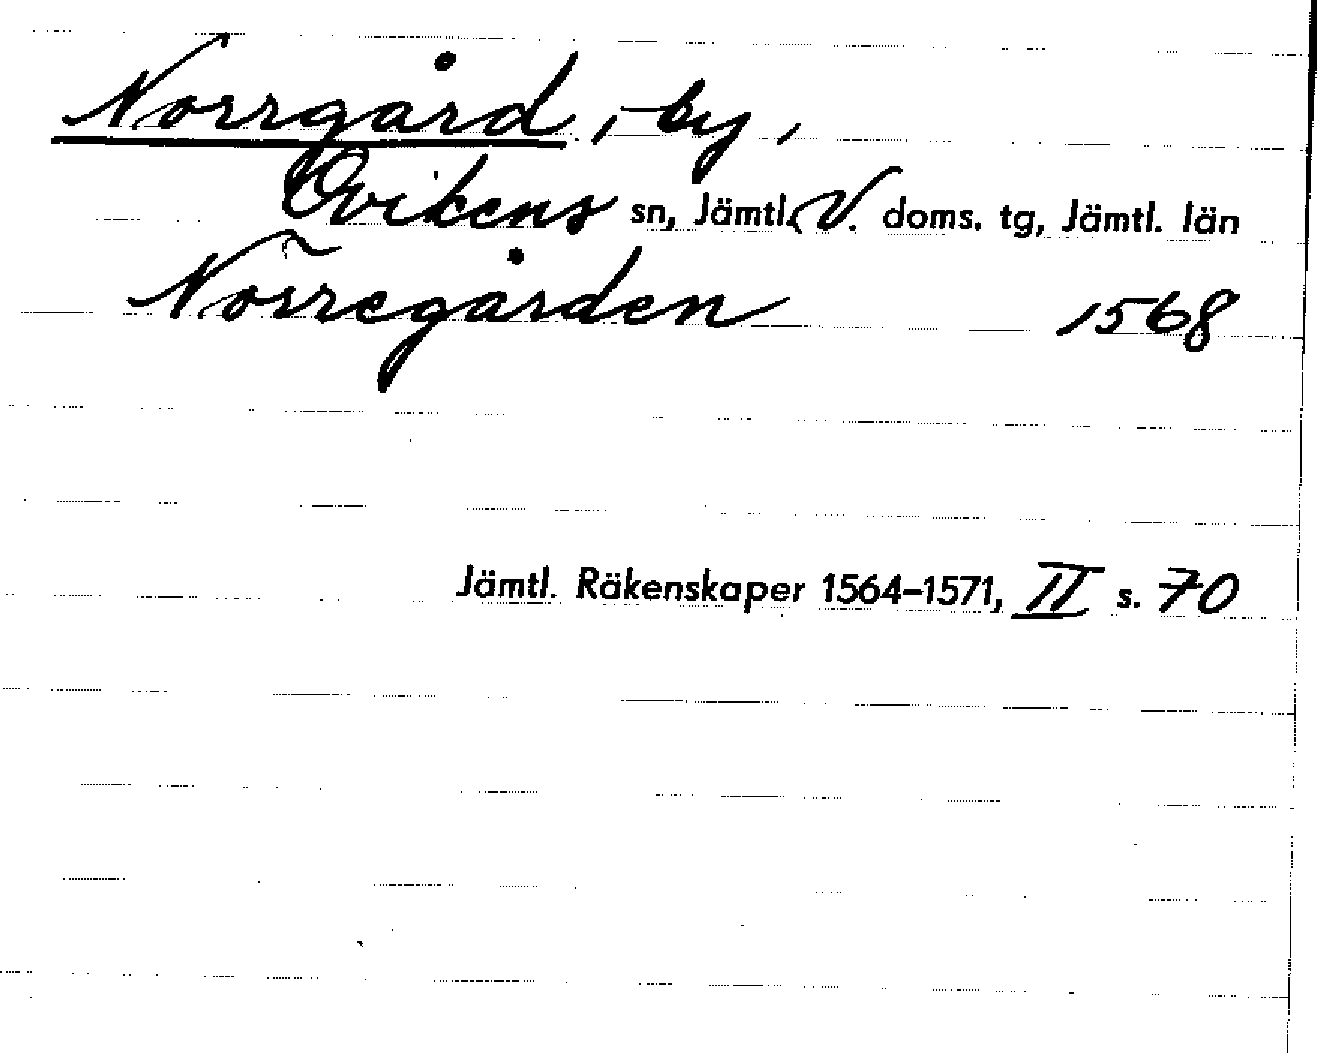 Norrgård, by,
Ovikens sn, Jämtl. V. doms. tg, Jämtl. län
Norregården 1568
Jämtl. Räkenskaper 1564–1571, II s. 70